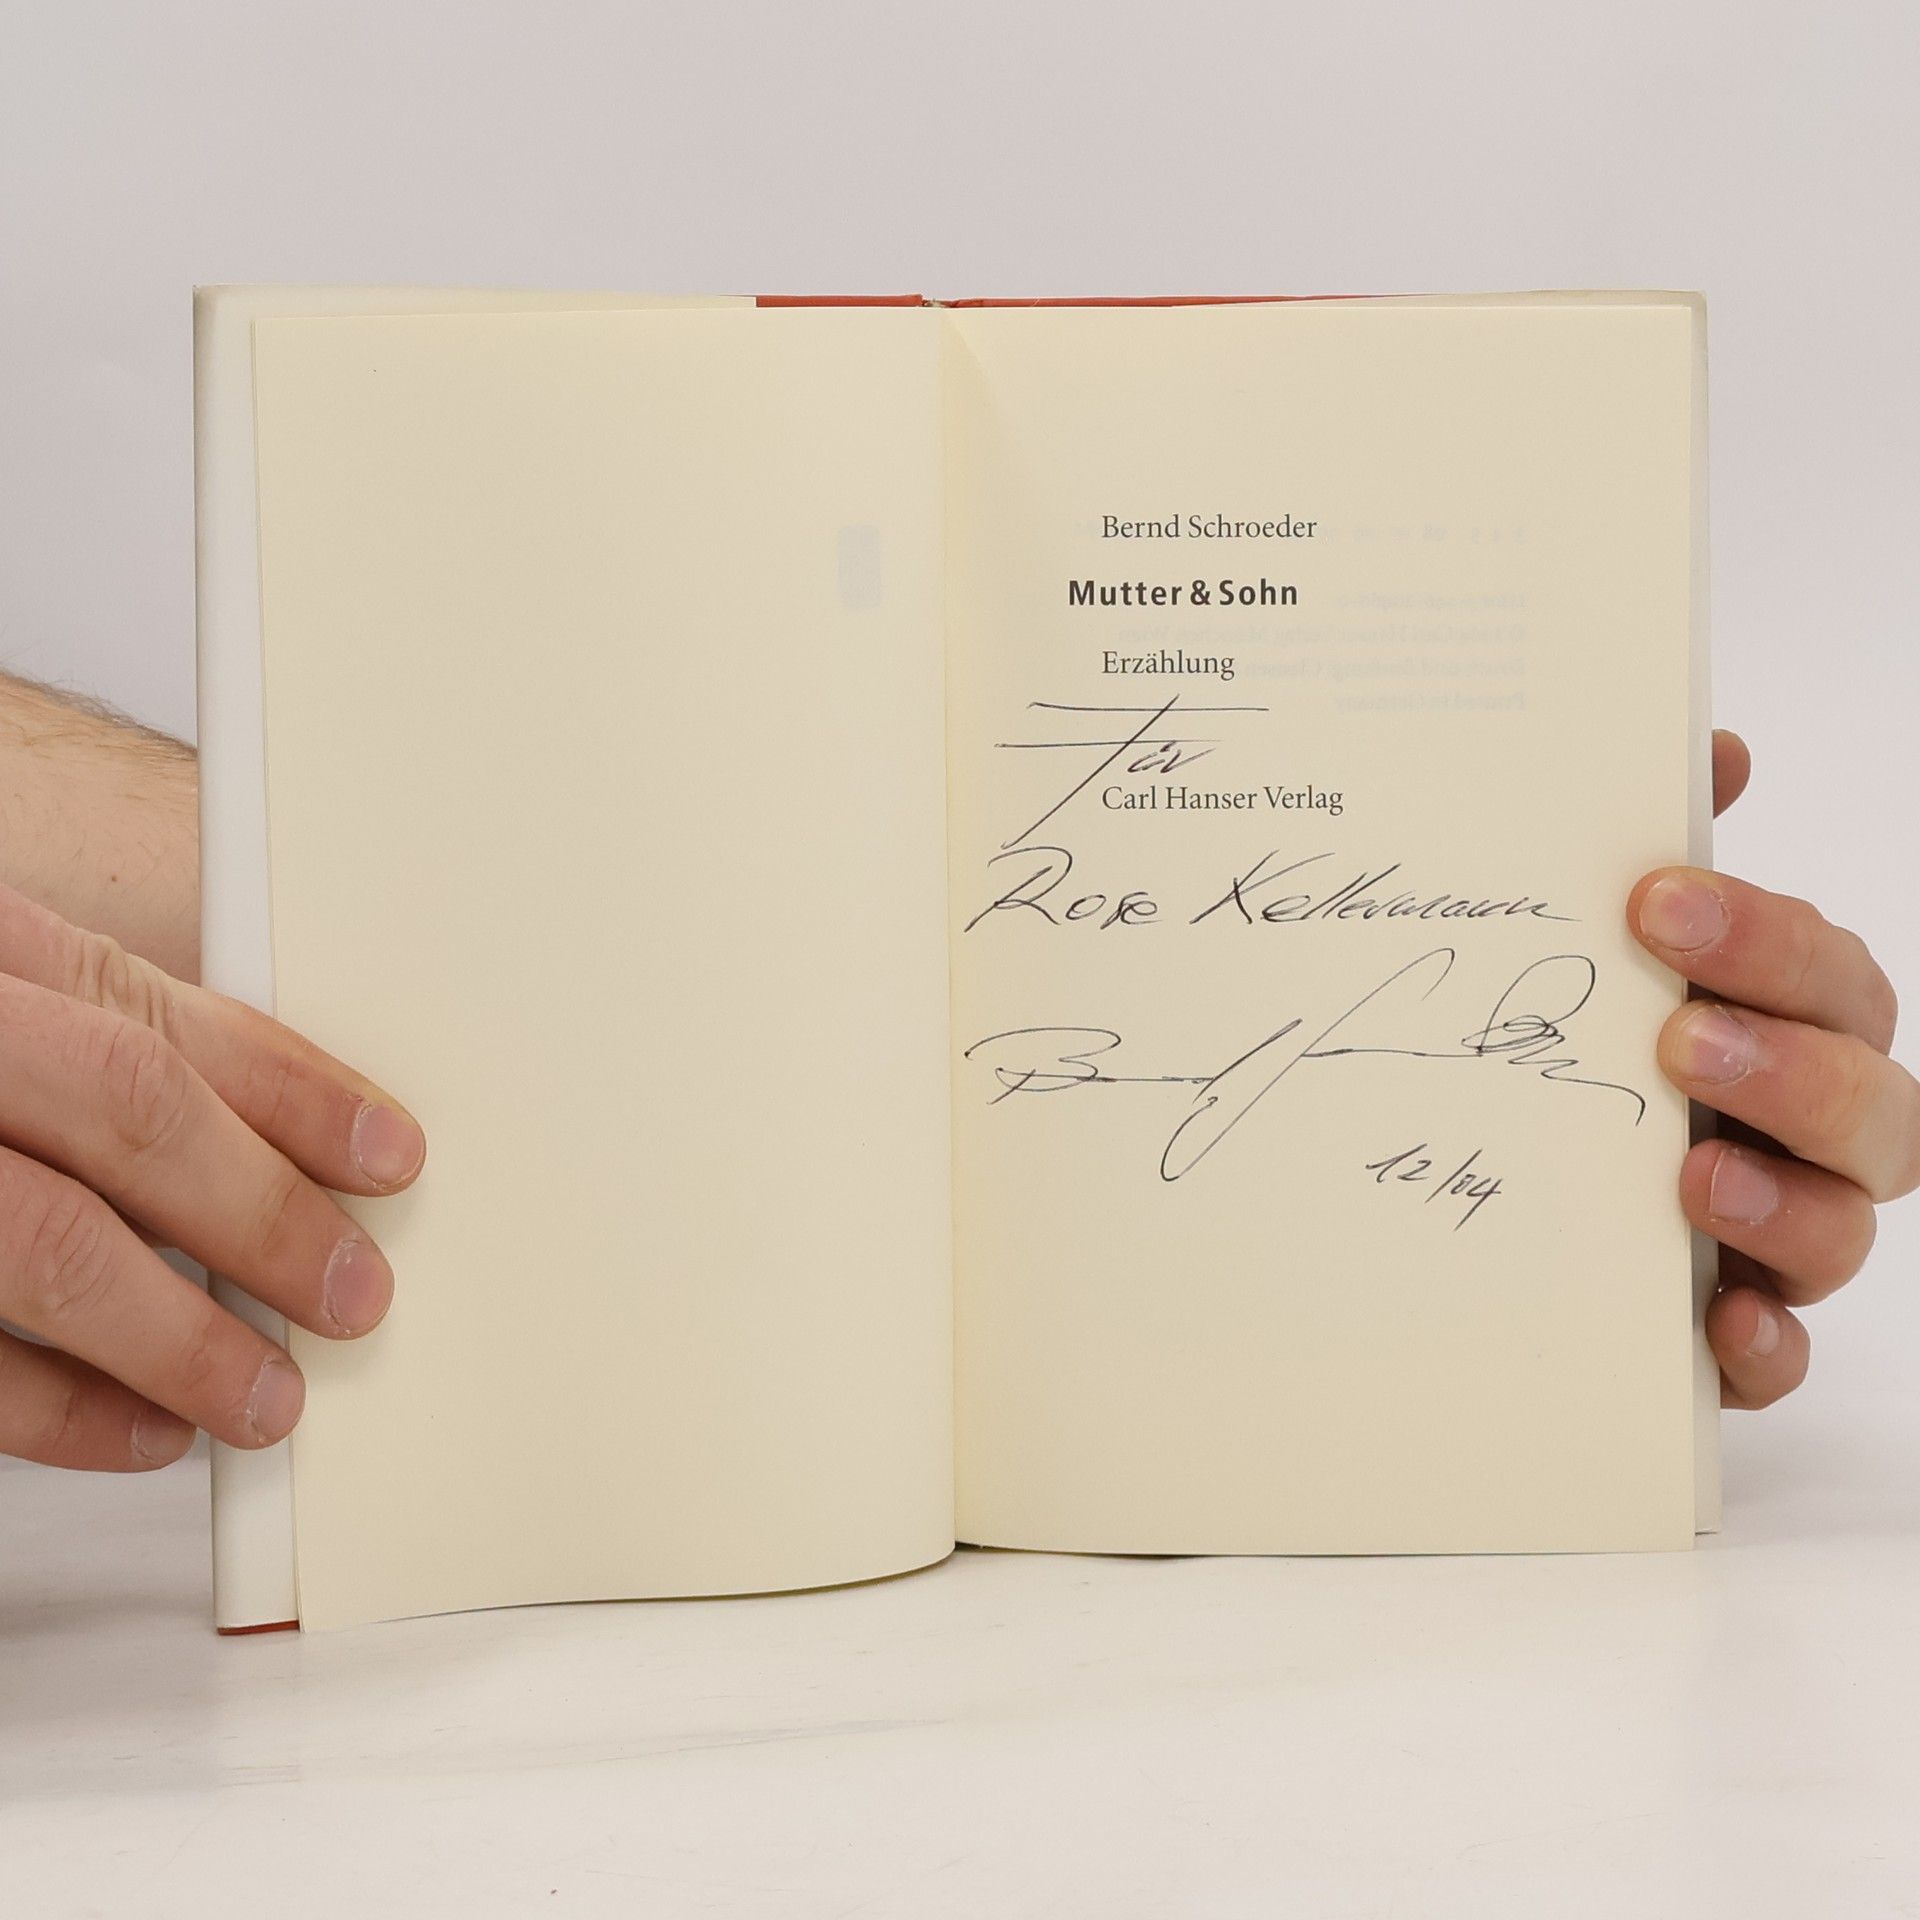 Bernd Schroeder
Mutter & Sohn
Erzählung
Für
Carl Hanser Verlag
Rose Kellermann
Bernd Schroeder
12/04